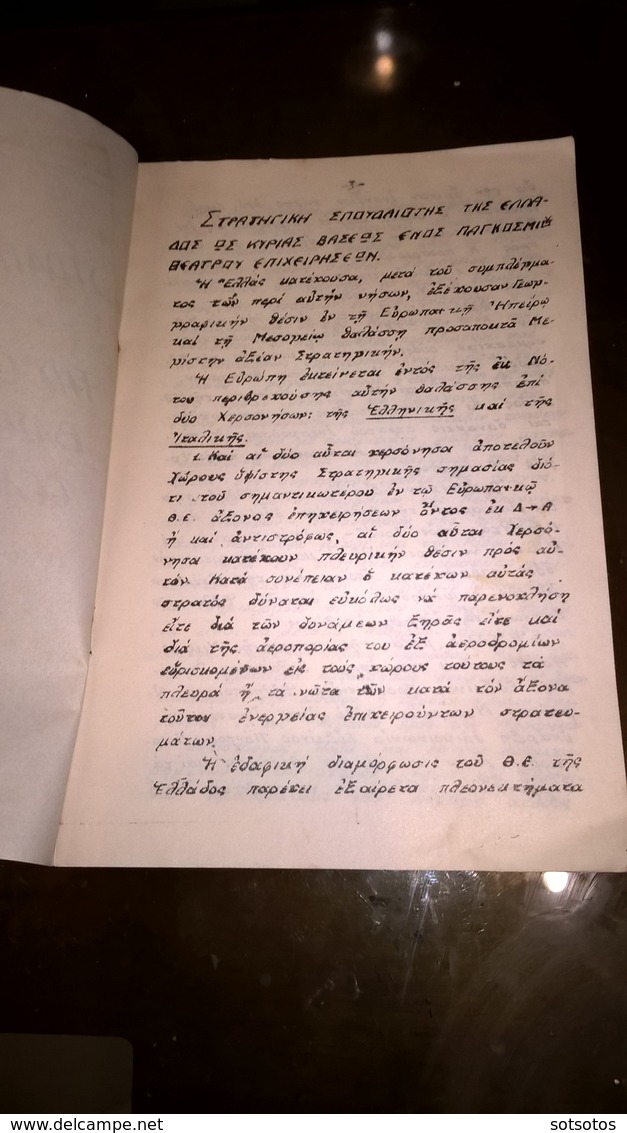 -3-
ΣΤΡΑΤΗΓΙΚΗ ΣΠΟΥΔΑΙΟΤΗΣ ΤΗΣ ΕΛΛΑ-
ΔΟΣ ΩΣ ΚΥΡΙΑΣ ΒΑΣΕΩΣ ΕΝΟΣ ΠΑΓΚΟΣΜΙΟΥ
ΘΕΑΤΡΟΥ ΕΠΙΧΕΙΡΗΣΕΩΝ.
Ἡ Ἑλλάς κατέχουσα, μετά τοῦ συμπλέγμα-
τος τῶν περί αὐτήν νήσων, ἐξέχουσαν Γεω-
γραφικήν θέσιν ἐν τῇ Εὐρωπαϊκῇ Ἠπείρῳ
καί τῇ Μεσογείῳ θαλάσσῃ προσαποκτᾶ Με-
γίστην ἀξίαν Στρατηγικήν.
Ἡ Εὐρώπη ἐκτείνεται ἐντός τῆς ἐκ Νό-
του περιβρεχούσης αὐτήν θαλάσσης ἐπί
δύο Χερσονήσων: τῆς Ἑλληνικῆς καί τῆς
Ἰταλικῆς.
1. Καί αἱ δύο αὗται χερσόνησοι ἀποτελοῦν
Χώρους ὑψίστης Στρατηγικῆς σημασίας διό-
τι τοῦ σημαντικωτέρου ἐν τῷ Εὐρωπαϊκῷ
Θ.Ε. ἄξονος ἐπιχειρήσεων ὄντος ἐκ Δ→Α
ἤ καί ἀντιστρόφως, αἱ δύο αὗται Χερσό-
νησοι κατέχουν πλευρικήν θέσιν πρός αὐ-
τόν. Κατά συνέπειαν ὁ κατέχων αὐτάς
στρατός δύναται εὐκόλως νά παρενοχλήσῃ
εἴτε διά τῶν δυνάμεων Ξηρᾶς εἴτε καί
διά τῆς ἀεροπορίας του ἐξ ἀεροδρομίων
εὑρισκομένων εἰς τούς χώρους τούτους τά
πλευρά ἤ τά νῶτα τῶν κατά τόν ἄξονα
τοῦτον ἐνεργείας ἐπιχειρούντων στρατευ-
μάτων.
Ἡ ἐδαφική διαμόρφωσις τοῦ Θ.Ε. τῆς
Ἑλλάδος παρέχει ἐξαίρετα πλεονεκτήματα
www.delcampe.net
sotsotos